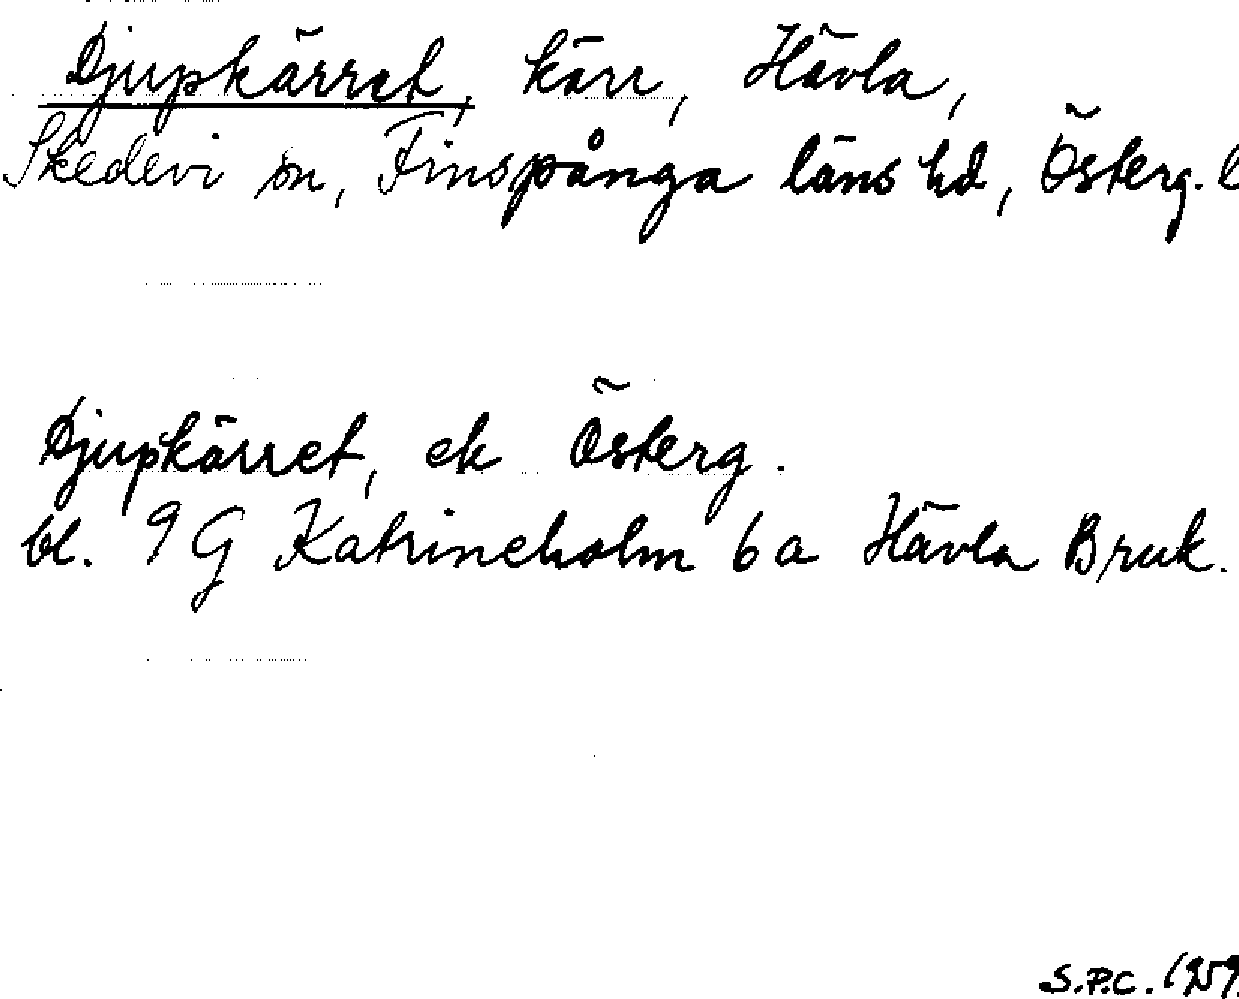 Djupkärret, kärr, Hävla,
Skedevi sn, Finspånga läns hd, Österg. l
Djupkärret, ek Österg.
bl. 9 G Katrineholm 6 a Hävla Bruk.
S.P.C. 1959.